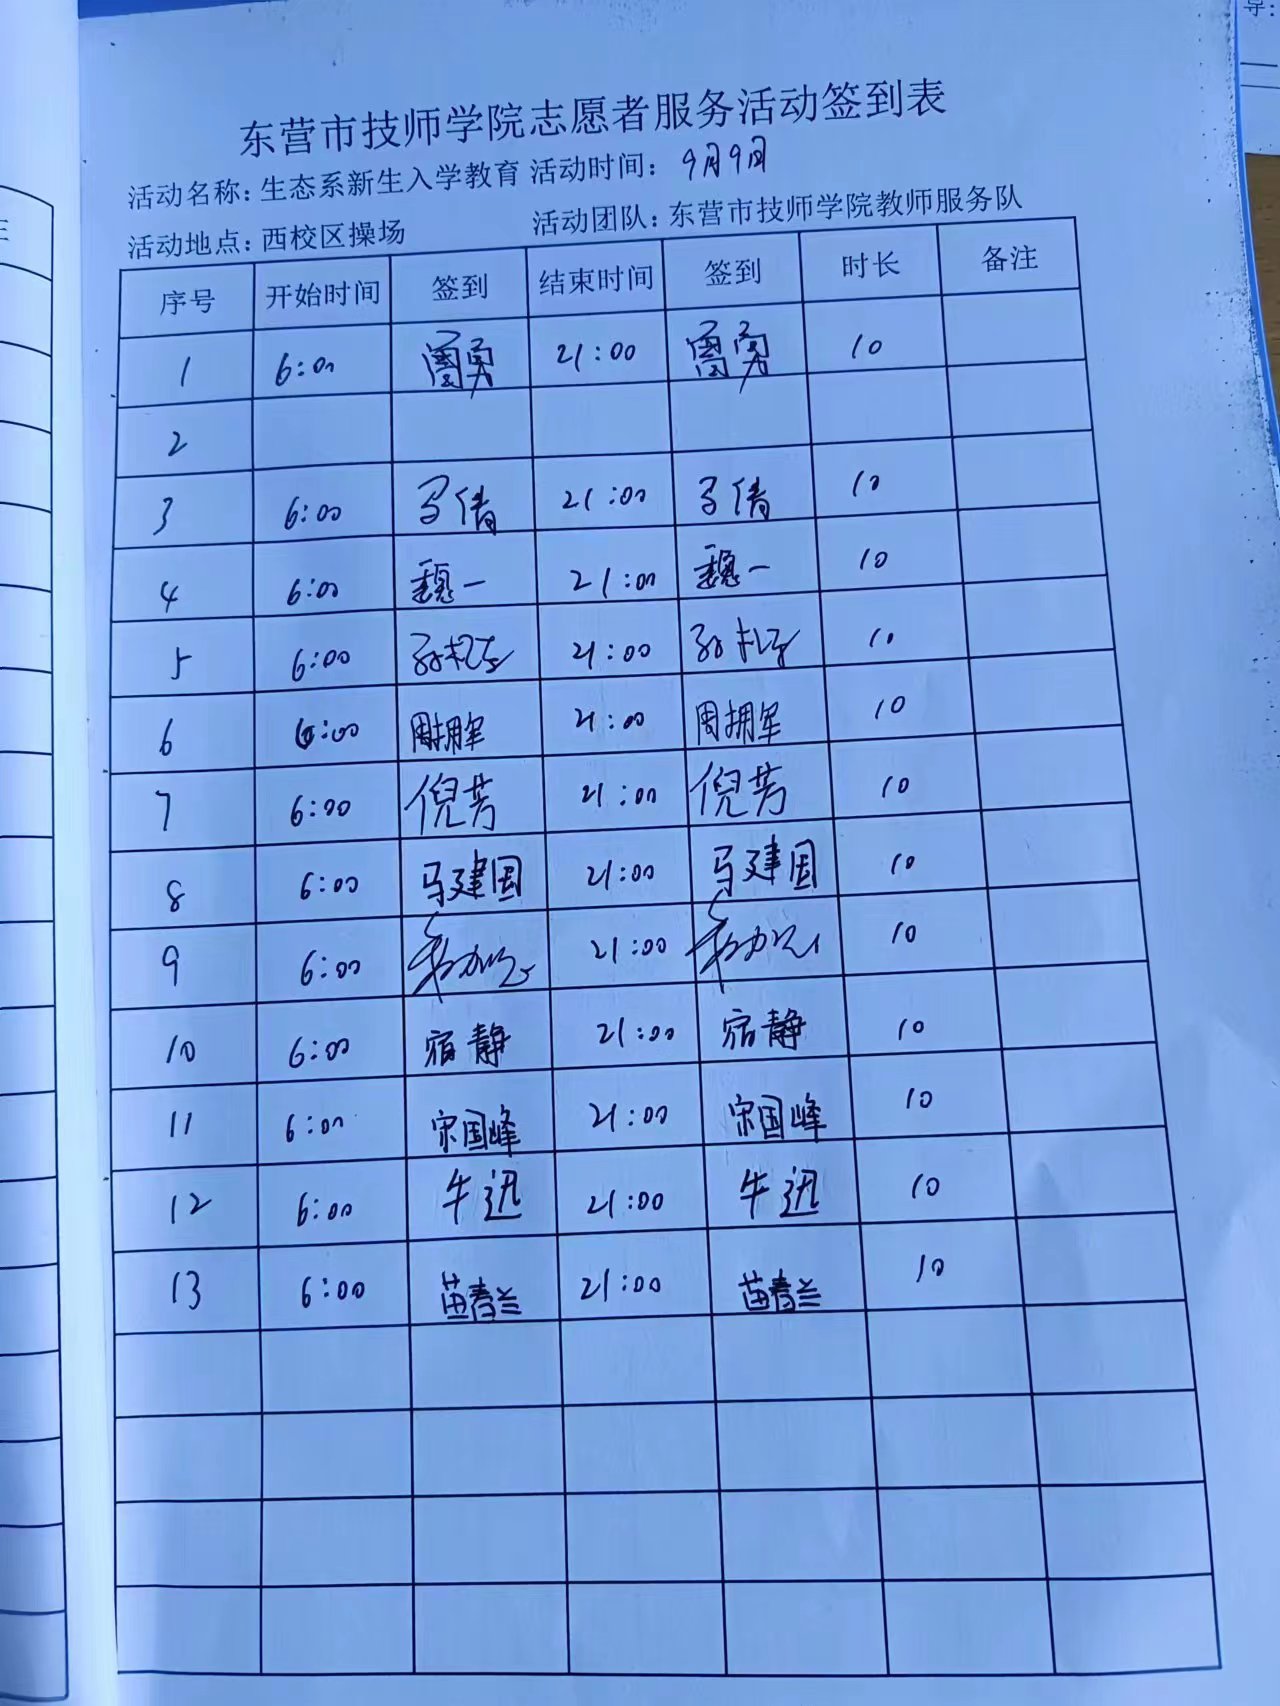 导:
东营市技师学院志愿者服务活动签到表
活动名称: 生态系新生入学教育 活动时间: 9月9日
活动地点: 西校区操场 活动团队: 东营市技师学院教师服务队
序号 开始时间 签到 结束时间 签到 时长 备注
1 6:00 21:00 10
2
3 6:00 马倩 21:00 马倩 10
4 6:00 魏一 21:00 魏一 10
5 6:00 21:00 10
6 6:00 周拥军 21:00 周拥军 10
7 6:00 倪芳 21:00 倪芳 10
8 6:00 马建国 21:00 马建国 10
9 6:00 21:00 10
10 6:00 宿静 21:00 宿静 10
11 6:00 宋国峰 21:00 宋国峰 10
12 6:00 牛迅 21:00 牛迅 10
13 6:00 苗春兰 21:00 苗春兰 10